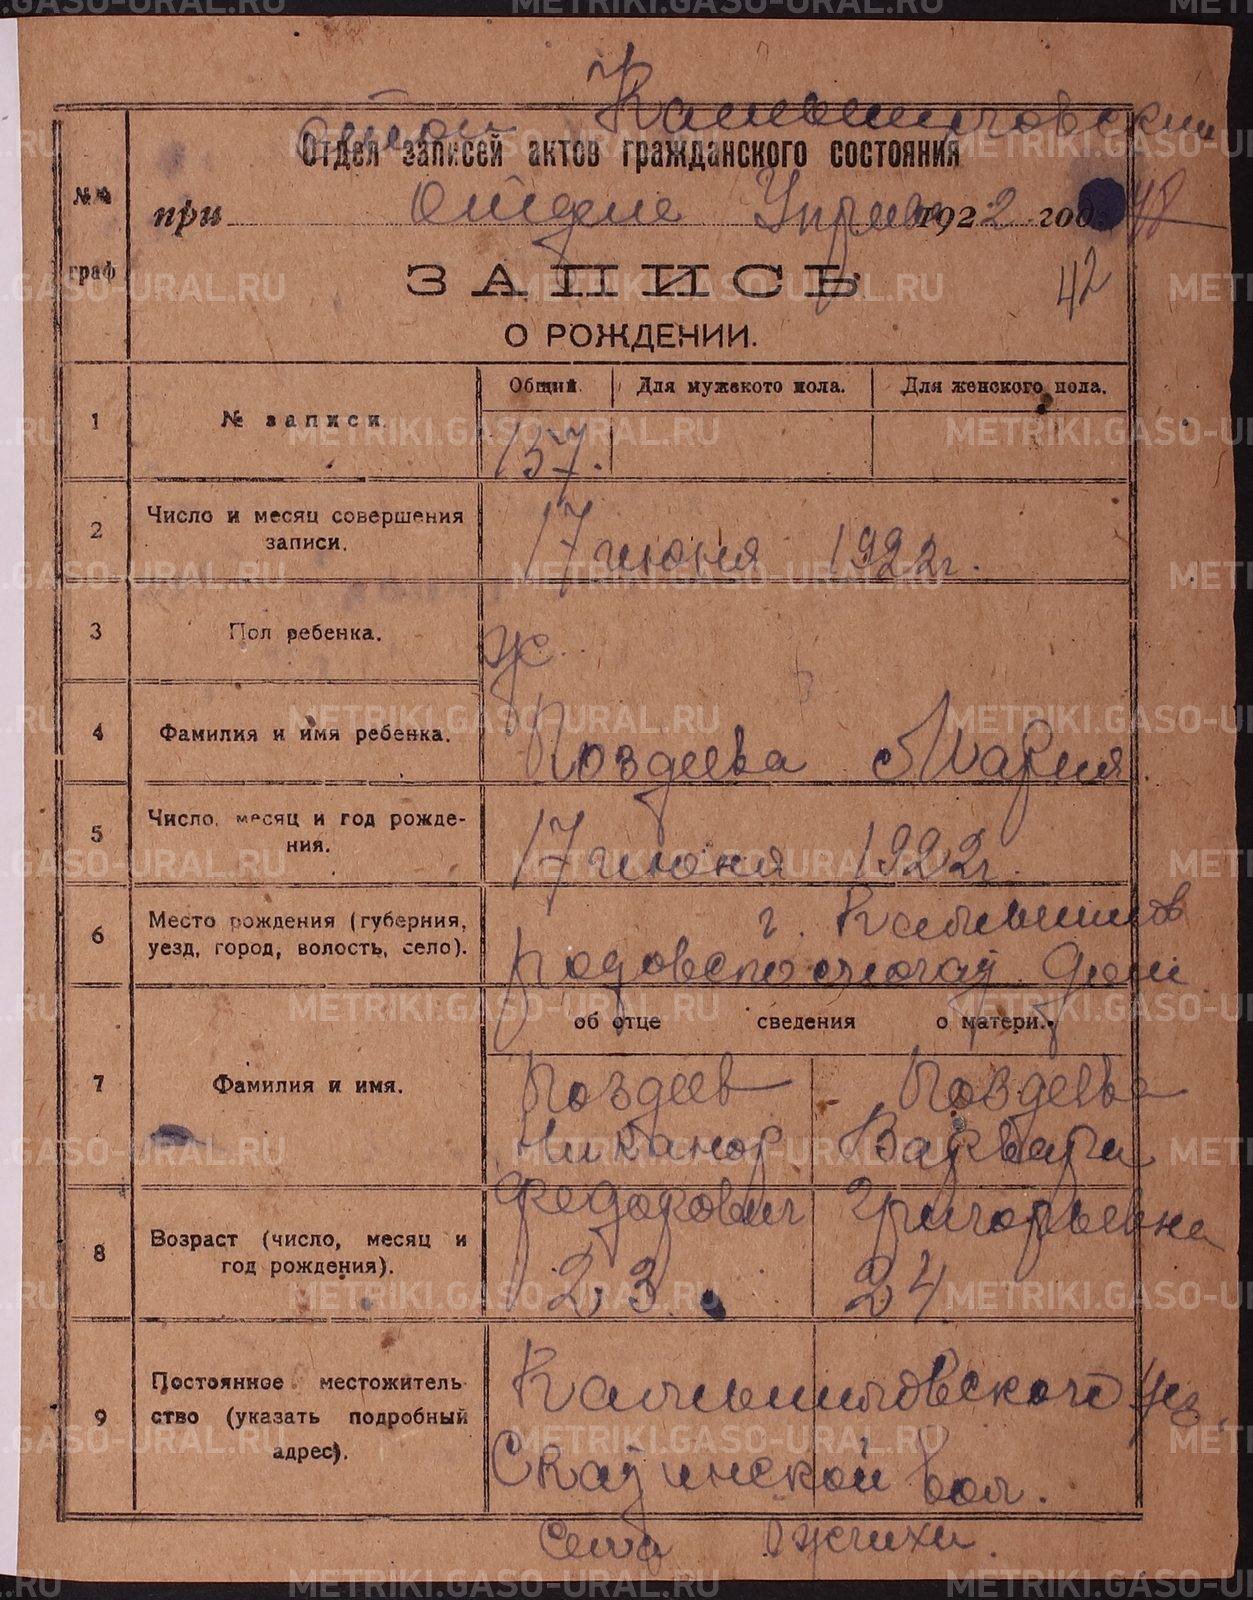 Камышловский
Отдел записей актов гражданского состояния
при Отделе Управ 1922 год. 48
№№ граф
42
ЗАПИСЬ
О РОЖДЕНИИ.
Общий Для мужского пола. Для женского пола.
1 № записи. 137.
2 Число и месяц совершения записи. 17 июня 1922 г.
3 Пол ребенка. ж.
4 Фамилия и имя ребенка. Поздеева Мария.
5 Число, месяц и год рождения. 17 июня 1922 г.
6 Место рождения (губерния, уезд, город, волость, село). г. Камышлов
дом
об отце сведения о матери.
7 Фамилия и имя. Поздеев Поздеева
Никанор Варвара
Федорович Григорьевна
8 Возраст (число, месяц и год рождения). 23. 24
9 Постоянное местожительство (указать подробный адрес). Камышловского уез.
вол.
Села
METRIKI.GASO-URAL.RU